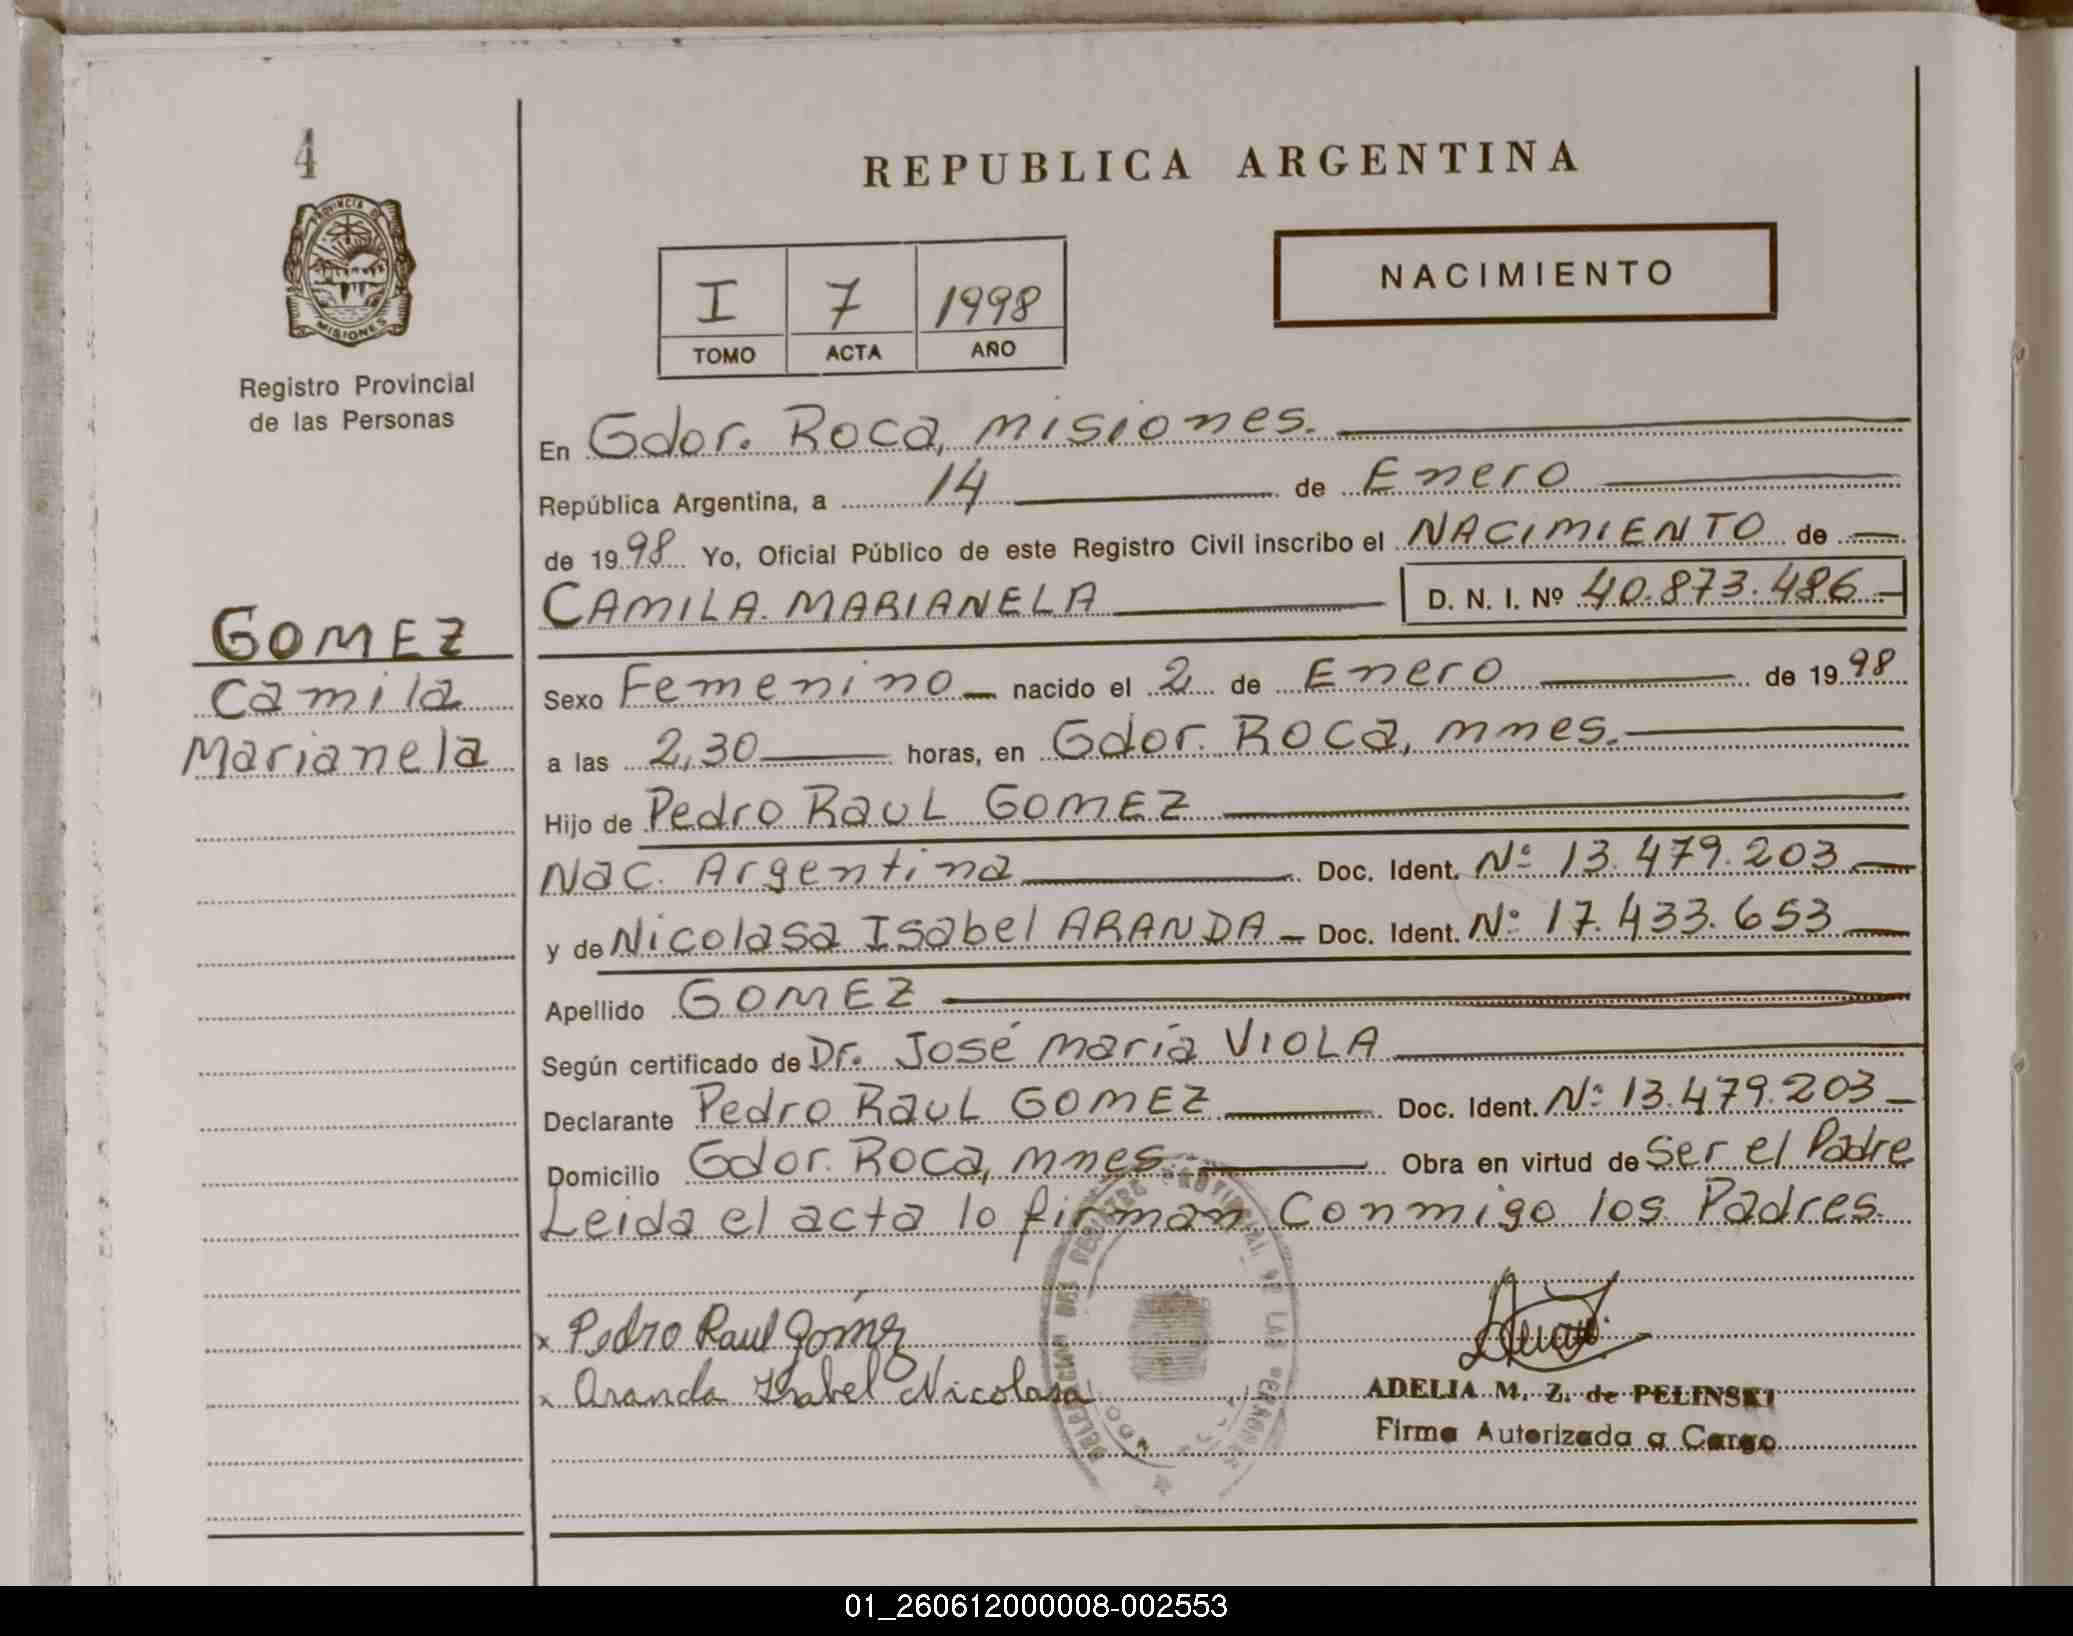 4
PROVINCIA DE
MISIONES
Registro Provincial
de las Personas
GOMEZ
Camila
Marianela
REPUBLICA ARGENTINA
I 7 1998
TOMO ACTA AÑO
NACIMIENTO
En Gdor. Roca, misiones.
República Argentina, a 14 de Enero
de 1998 Yo, Oficial Público de este Registro Civil inscribo el NACIMIENTO de
CAMILA MARIANELA D. N. I. Nº 40.873.486
Sexo Femenino nacido el 2 de Enero de 1998
a las 2,30 horas, en Gdor. Roca, mnes.
Hijo de Pedro Raul GOMEZ
Nac. Argentina Doc. Ident. Nº 13.479.203
y de Nicolasa Isabel ARANDA Doc. Ident. Nº 17.433.653
Apellido GOMEZ
Según certificado de Dr. José maría VIOLA
Declarante Pedro Raul GOMEZ Doc. Ident. Nº 13.479.203
Domicilio Gdor. Roca, mnes Obra en virtud de Ser el Padre
Leida el acta lo firman Conmigo los Padres.
x Pedro Raul Gómez
x Aranda Isabel Nicolasa
ADELIA M. Z. de PELINSKI
Firma Autorizada a Cargo
01_260612000008-002553